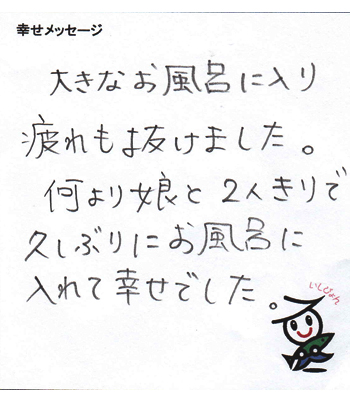 幸せメッセージ
大きなお風呂に入り
疲れもは抜けました。
何より娘と2人きりで
久しぶりにお風呂に
入れて幸せでした。
いしぴょん